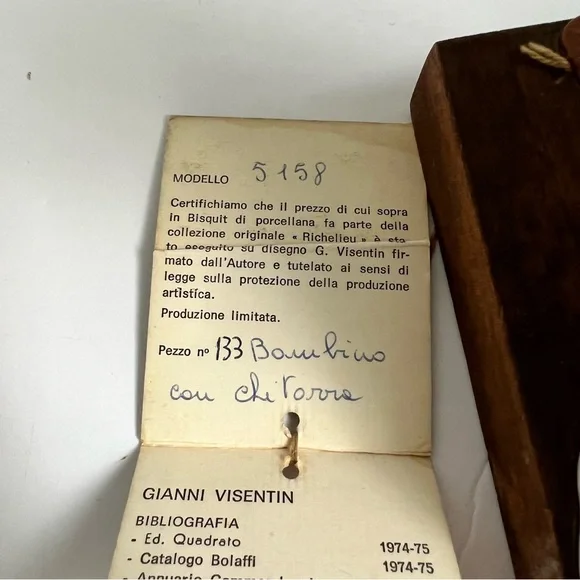 MODELLO 5158
Certifichiamo che il prezzo di cui sopra
in Bisquit di porcellana fa parte della
collezione originale « Richelieu » è sta-
to eseguito su disegno G. Visentin fir-
mato dall'Autore e tutelato ai sensi di
legge sulla protezione della produzione
artistica.
Produzione limitata.
Pezzo n° 133 Bambino
con chitarra
GIANNI VISENTIN
BIBLIOGRAFIA
- Ed. Quadrato 1974-75
- Catalogo Bolaffi 1974-75
- Annuario